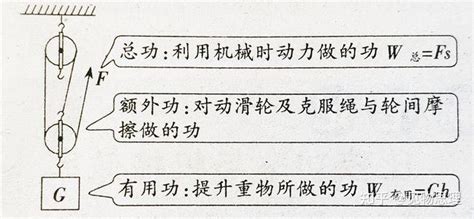 总功:利用机械时动力做的功 W总=Fs
F
额外功:对动滑轮及克服绳与轮间摩
擦做的功
G
有用功:提升重物所做的功 W有用=Gh